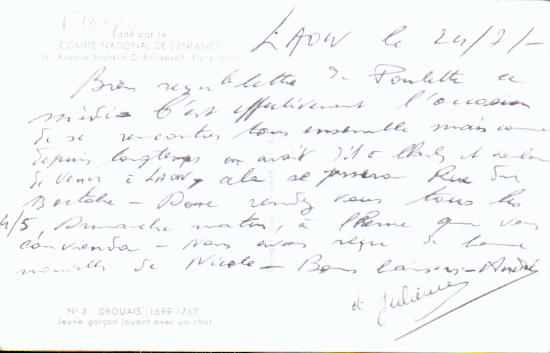 Édité par le
COMITÉ NATIONAL DE L'ENFANCE
51, Avenue Franklin D. Roosevelt, Paris (VIIIe)
LAON le 24/7/-
Bien reçu lettre de Paulette ce
midi. C'est effectivement l'occasion
de se rencontrer tous ensemble mais comme
depuis longtemps on avait dit à Charles et
de venir à LAON, cela se passera Rue du
Donc rendez vous tous les
4/5 Dimanche matin, à l'heure qui vous
conviendra - Nous avons reçu de bonnes
nouvelles de Nicole - Bons baisers - André
et Julienne
No 3 - DROUAIS (1699-1767)
Jeune garçon jouant avec un chat